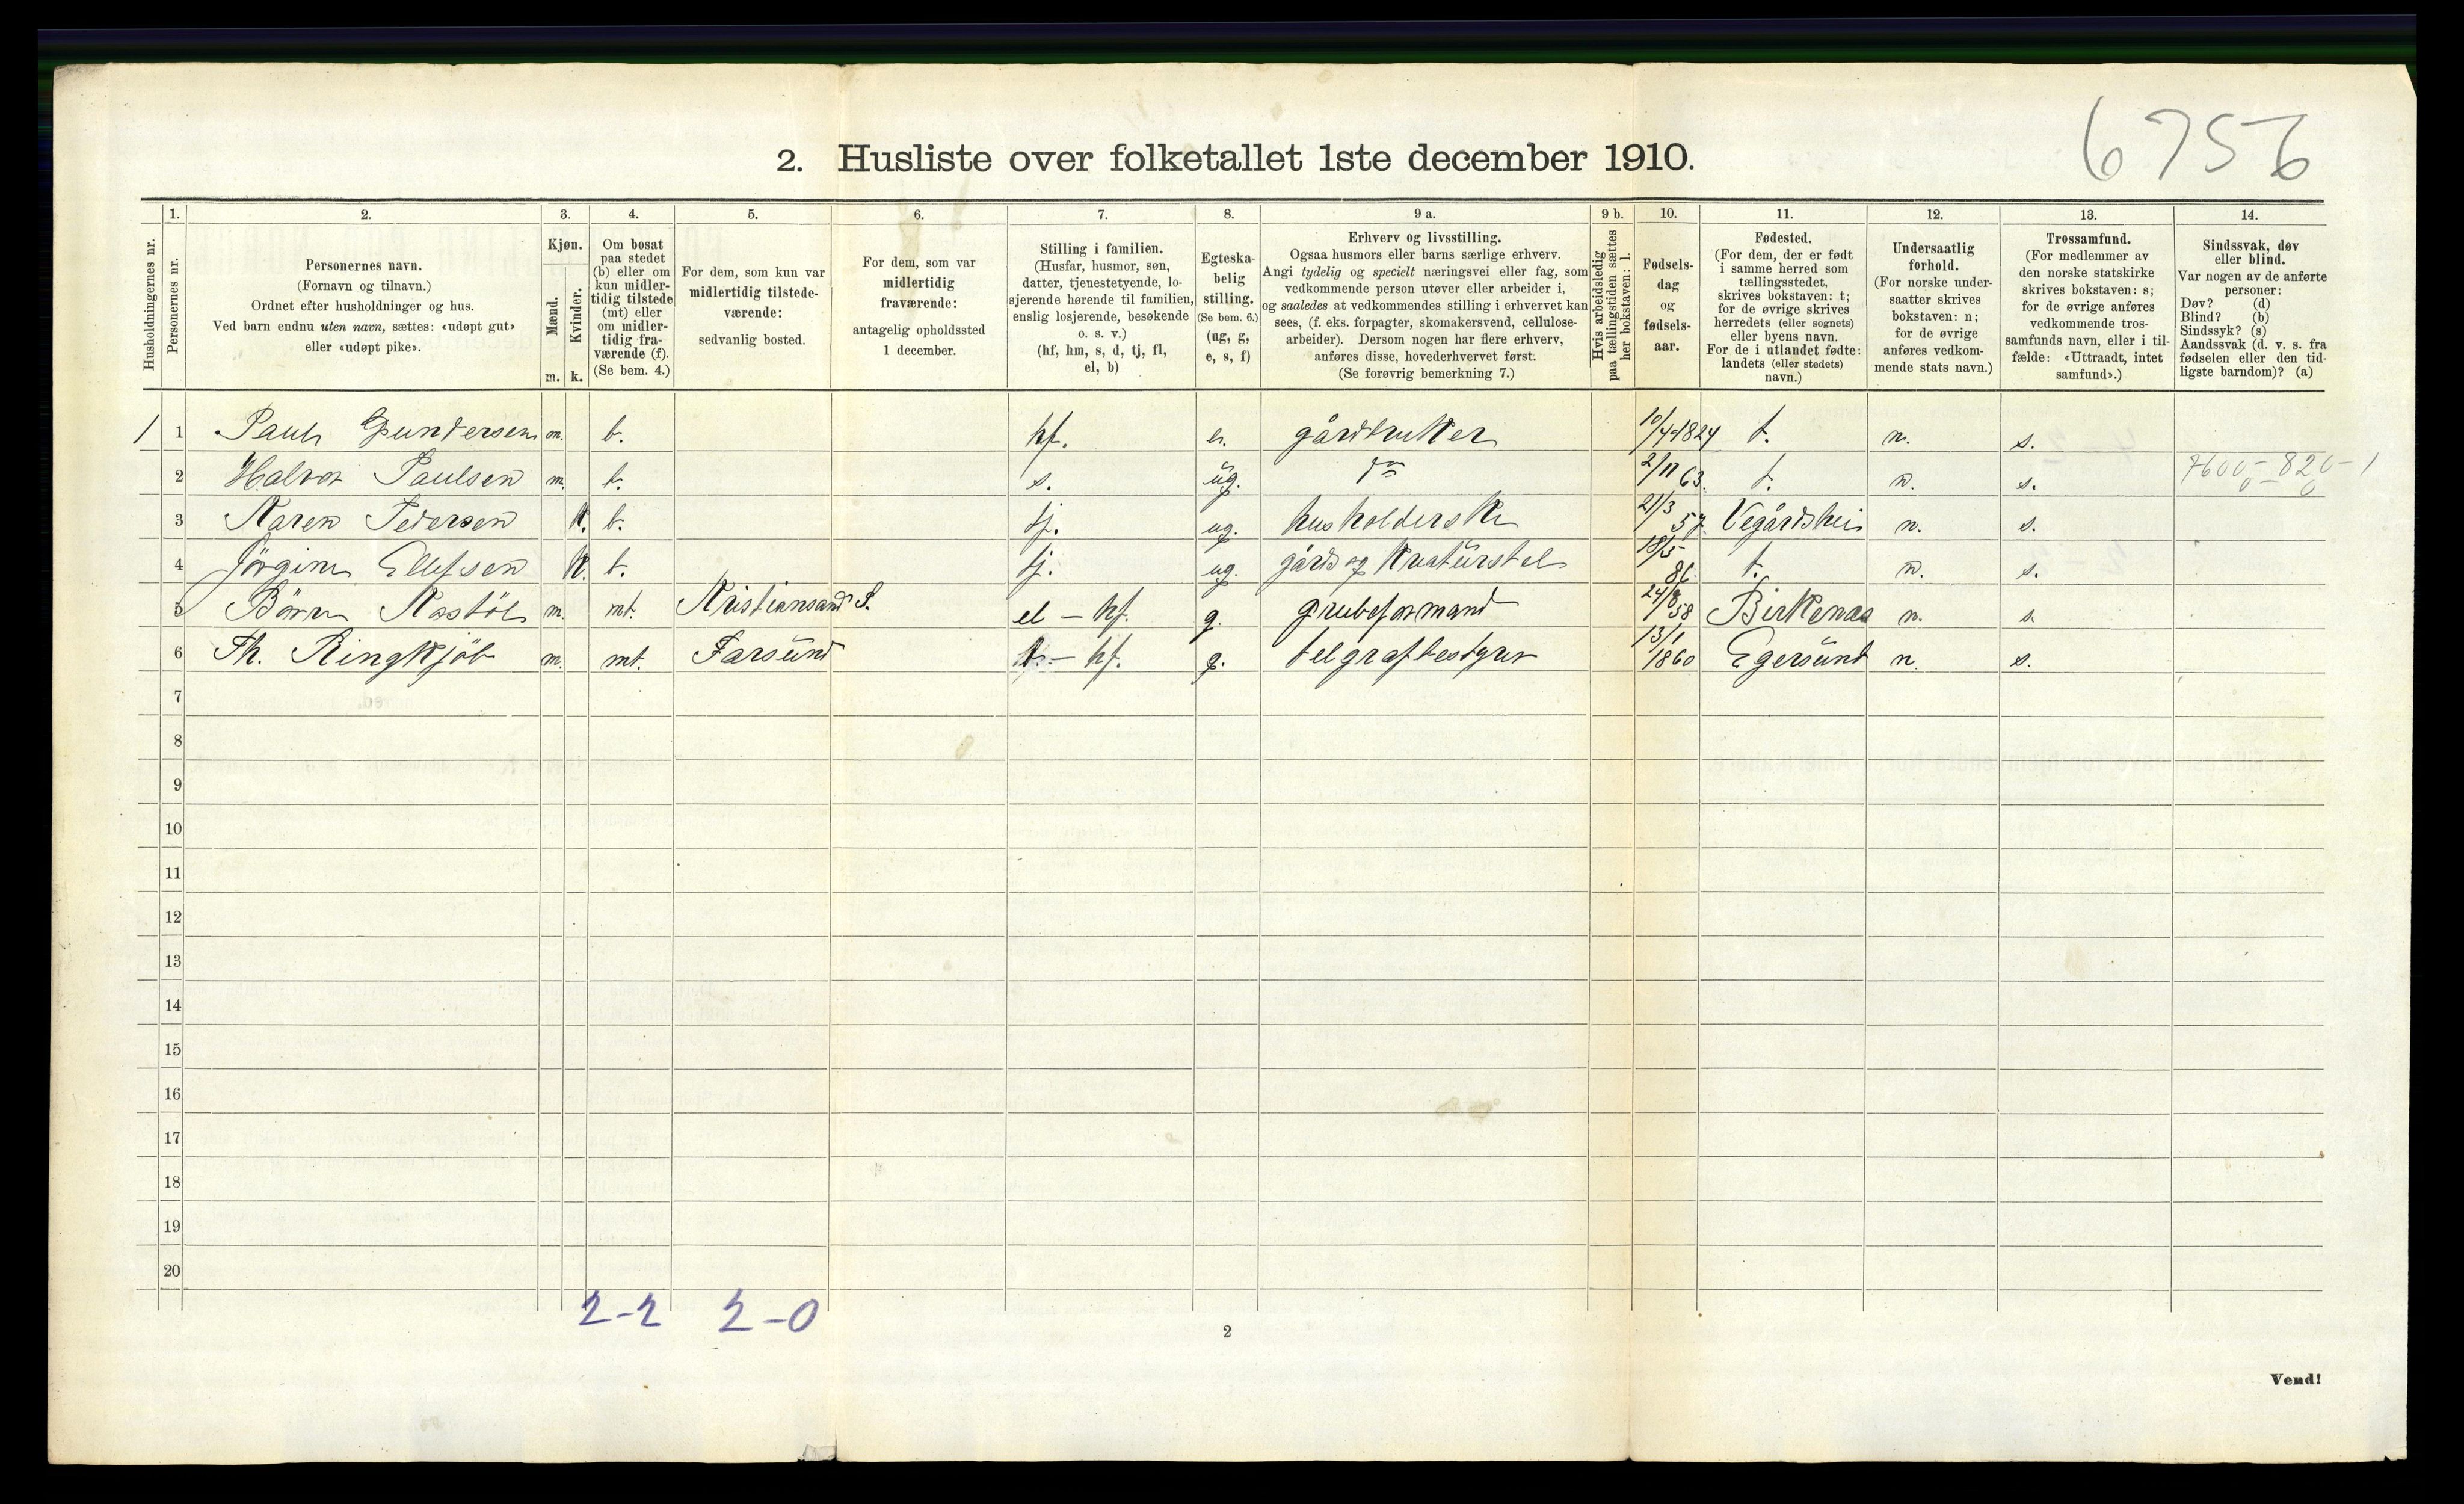 6756
2. Husliste over folketallet 1ste december 1910.
1. 2. 3. 4. 5. 6. 7. 8. 9 a. 9 b. 10. 11. 12. 13. 14.
Husholdningernes nr.
Personernes nr.
Personernes navn.
(Fornavn og tilnavn.)
Ordnet efter husholdninger og hus.
Ved barn endnu uten navn, sættes: «udøpt gut»
eller «udøpt pike».
Kjøn.
Mænd.
Kvinder.
m. k.
Om bosat
paa stedet
(b) eller om
kun midler-
tidig tilstede
(mt) eller
om midler-
tidig fra-
værende (f).
(Se bem. 4.)
For dem, som kun var
midlertidig tilstede-
værende:
sedvanlig bosted.
For dem, som var
midlertidig
fraværende:
antagelig opholdssted
1 december.
Stilling i familien.
(Husfar, husmor, søn,
datter, tjenestetyende, lo-
sjerende hørende til familien,
enslig losjerende, besøkende
o. s. v.)
(hf, hm, s, d, tj, fl,
el, b)
Egteska-
belig
stilling.
(Se bem. 6.)
(ug, g,
e, s, f)
Erhverv og livsstilling.
Ogsaa husmors eller barns særlige erhverv.
Angi tydelig og specielt næringsvei eller fag, som
vedkommende person utøver eller arbeider i,
og saaledes at vedkommendes stilling i erhvervet kan
sees, (f. eks. forpagter, skomakersvend, cellulose-
arbeider). Dersom nogen har flere erhverv,
anføres disse, hovederhvervet først.
(Se forøvrig bemerkning 7.)
Hvis arbeidsledig
paa tællingstiden sættes
her bokstaven: l.
Fødsels-
dag
og
fødsels-
aar.
Fødested.
(For dem, der er født
i samme herred som
tællingsstedet,
skrives bokstaven: t;
for de øvrige skrives
herredets (eller sognets)
eller byens navn.
For de i utlandet fødte:
landets (eller stedets)
navn.)
Undersaatlig
forhold.
(For norske under-
saatter skrives
bokstaven: n;
for de øvrige
anføres vedkom-
mende stats navn.)
Trossamfund.
(For medlemmer av
den norske statskirke
skrives bokstaven: s;
for de øvrige anføres
vedkommende tros-
samfunds navn, eller i til-
fælde: «Uttraadt, intet
samfund».)
Sindssvak, døv
eller blind.
Var nogen av de anførte
personer:
Døv? (d)
Blind? (b)
Sindssyk? (s)
Aandssvak (d. v. s. fra
fødselen eller den tid-
ligste barndom)? (a)
1 1 Paul Gundersen m. b. hf. e. gårdbruker 10/4-1824 t. n. s.
2 Halvor Paulsen m. b. s. ug. do 2/11 63. t. n. s. 7600-820-1
3 Karen Pedersen k. b. tj. ug. husholderske 21/3 57. Vegårdshei n. s.
4 Jörgine Ellefsen k. b. tj. ug. gårds og Kreaturstel 18/5 86. t. n. s.
5 Börre Rastöl m. mt. Kristiansand S. el - hf. g. grubeformand 24/8 58 Birkenæs n. s.
6 Th. Ringkjöb m. mt. Farsund - hf. g. telgrafbestyrer 13/1 1860 Egersund n. s.
7
8
9
10
11
12
13
14
15
16
17
18
19
20
2-2 2-0
2
Vend!